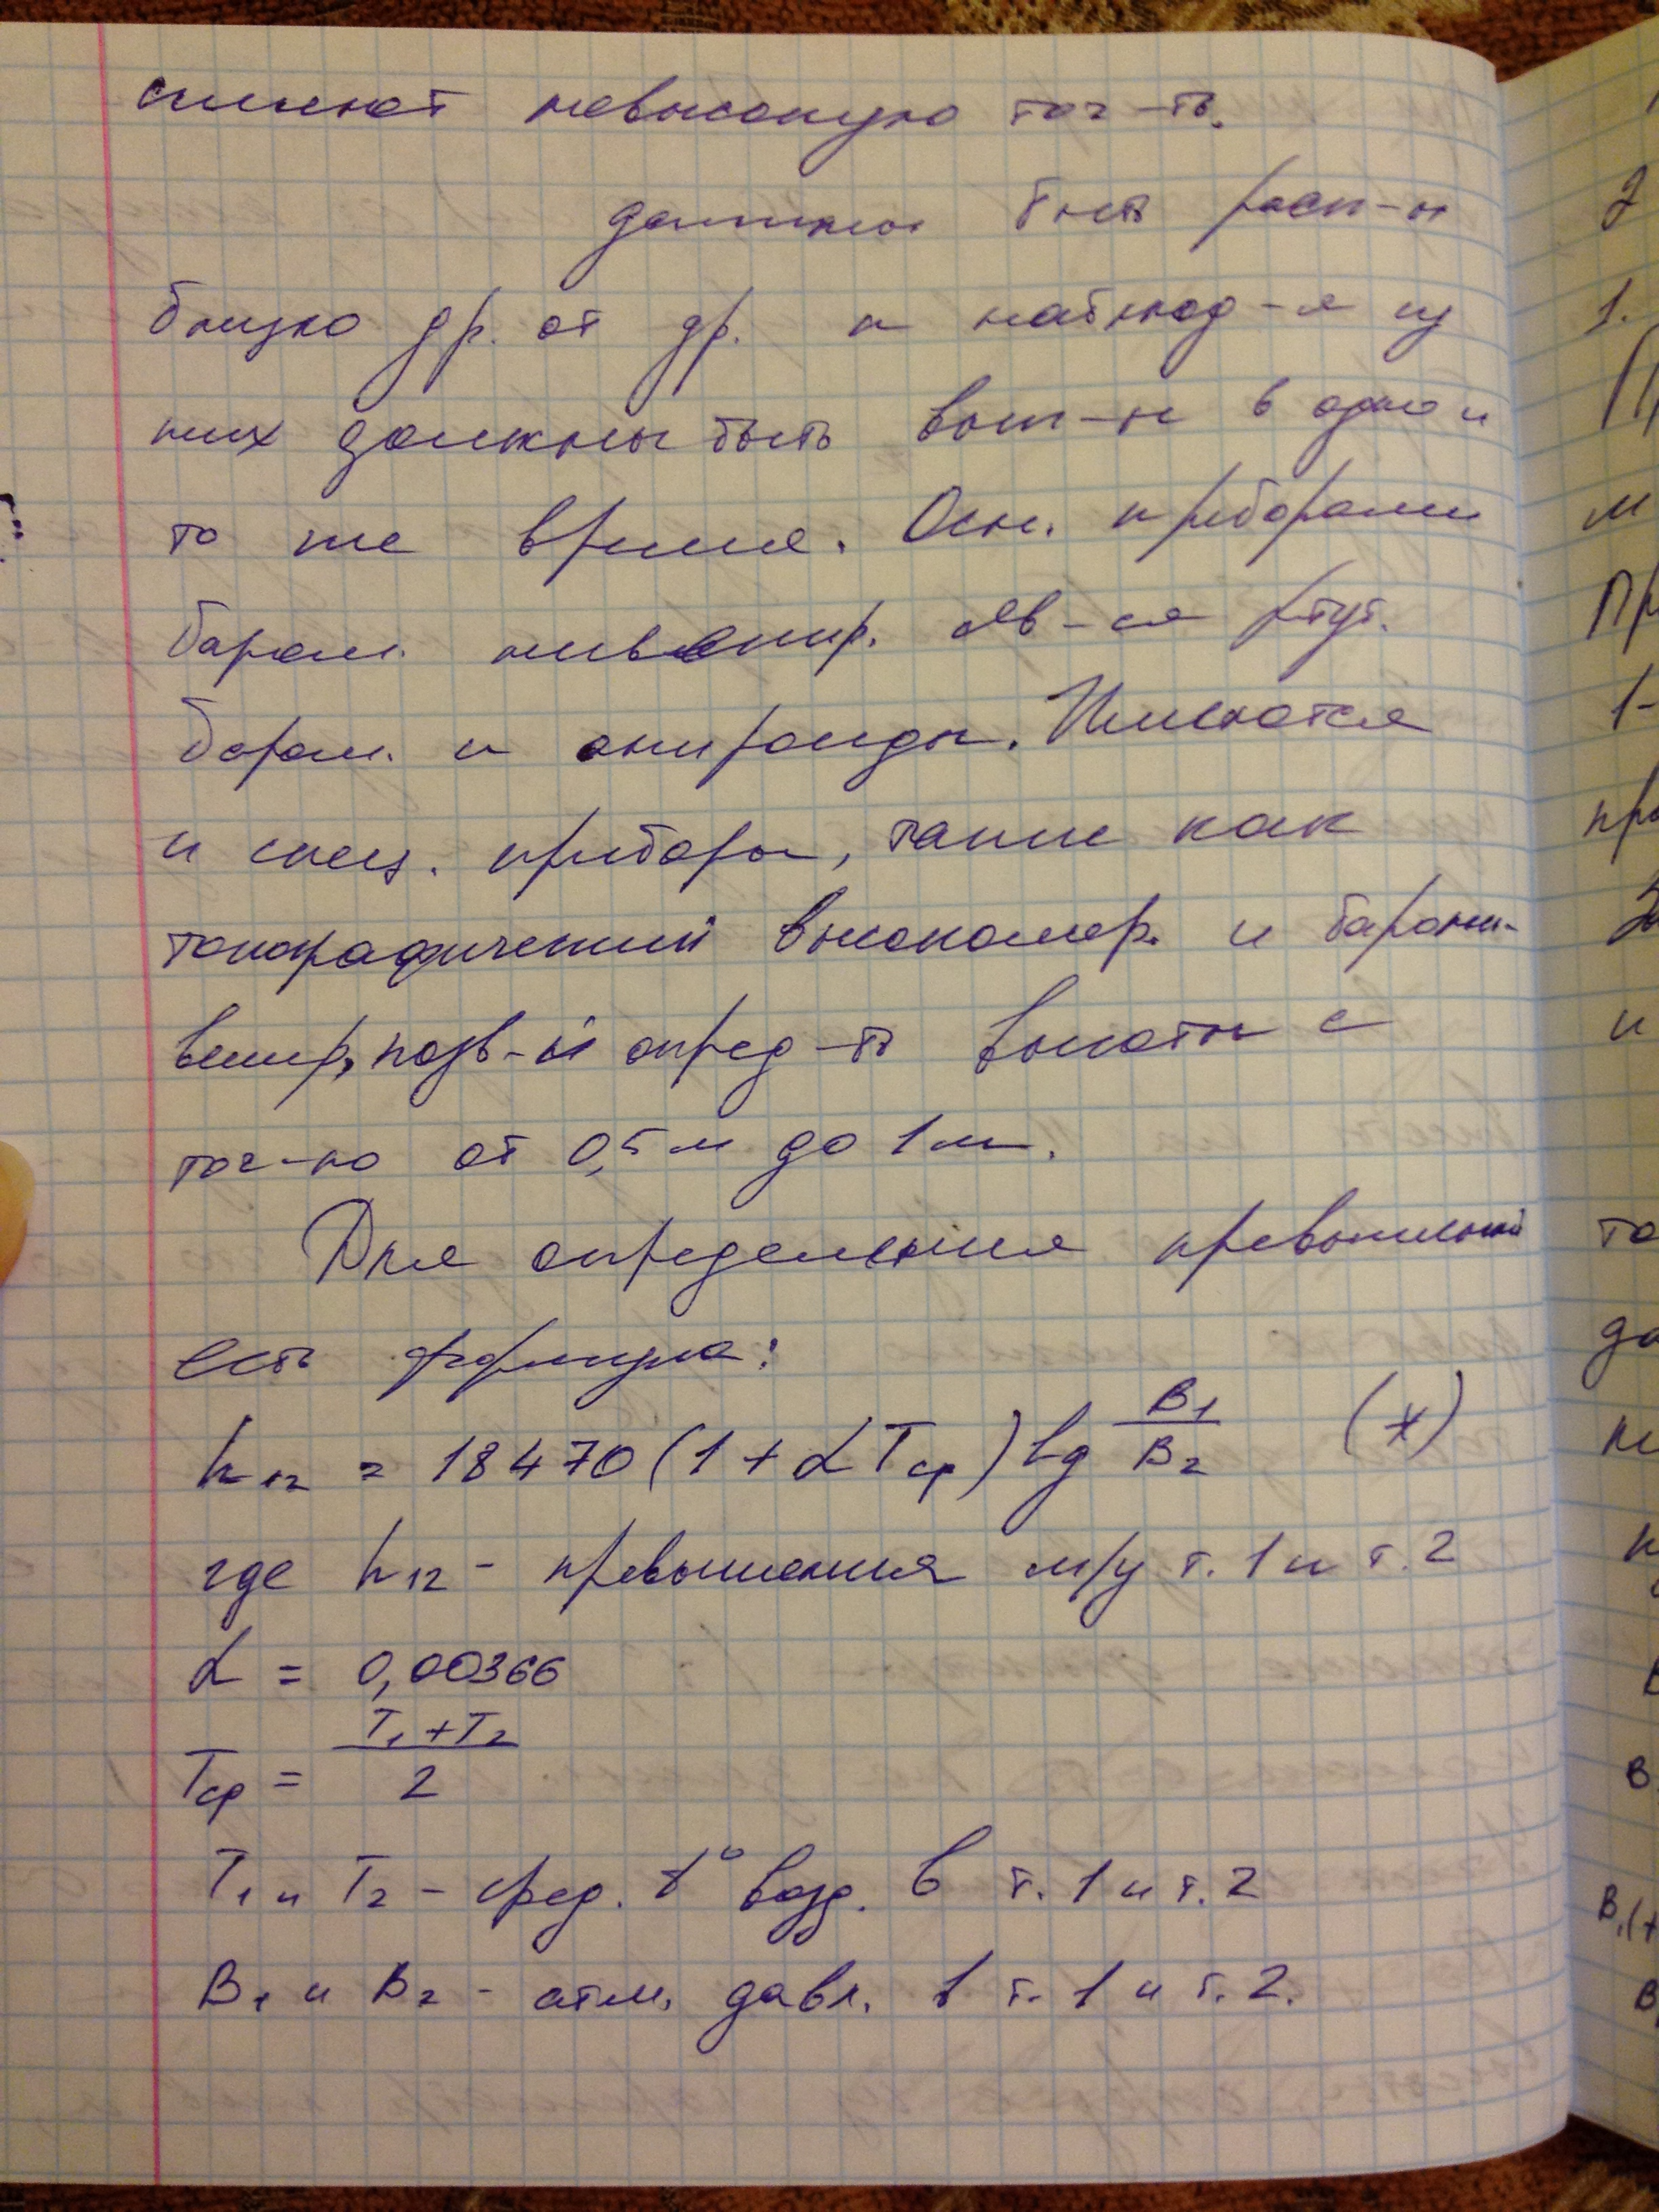 имеют невысокую точ-ть.
должны быть расп-ы
близко др. от др. и наблюд-я из
них должны быть вып-ы в одно и
то же время. Осн. приборами
баром. нивелир. яв-ся ртут.
баром. и анироиды. Имеются
и спец. приборы, такие как
топографический высокомер. и барони-
велир, позв-й опред-ть высоты с
точ-ю от 0,5 м до 1 м.
Для определения превышений
есть формула:
h₁₂ = 18470 (1 + αTср) lg B₁/B₂ (*)
где h₁₂ - превышения м/у т. 1 и т. 2
α = 0,00366
Tср = (T₁ + T₂)/2
T₁ и T₂ - сред. t° возд. в т. 1 и т. 2
B₁ и B₂ - атм. давл. в т. 1 и т. 2.